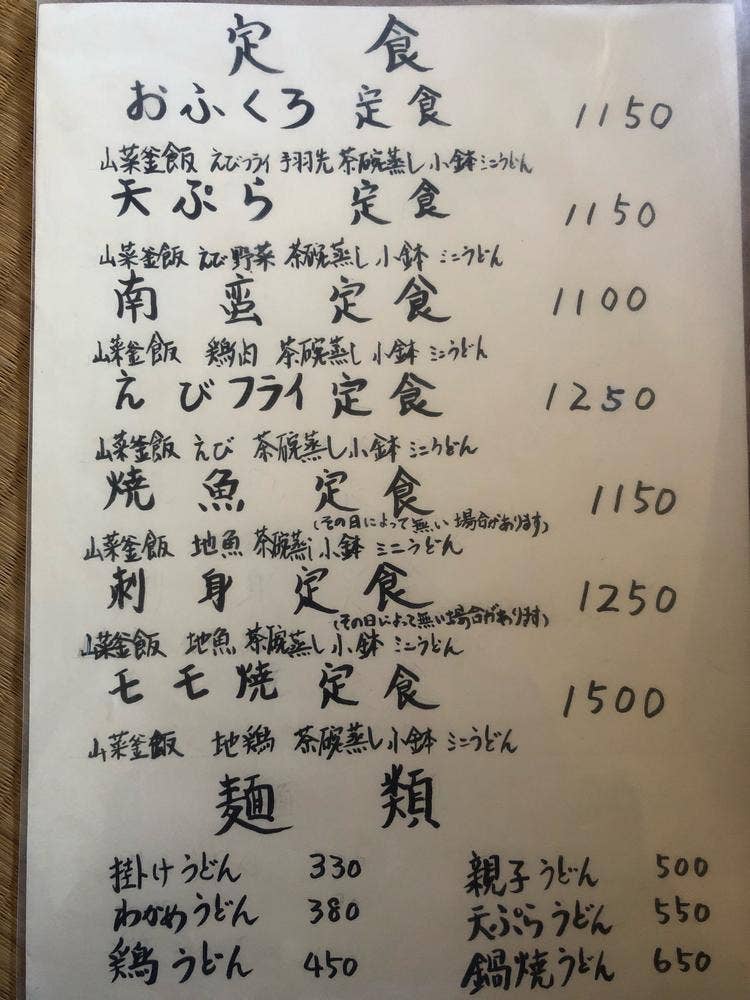 定食
おふくろ定食 1150
山菜釜飯 えびフライ 手羽先 茶碗蒸し 小鉢 ミニうどん
天ぷら定食 1150
山菜釜飯 えび野菜 茶碗蒸し 小鉢 ミニうどん
南蛮定食 1100
山菜釜飯 鶏肉 茶碗蒸し 小鉢 ミニうどん
えびフライ定食 1250
山菜釜飯 えび 茶碗蒸し 小鉢 ミニうどん
焼魚定食 1150
(その日によって無い場合があります)
山菜釜飯 地魚 茶碗蒸し 小鉢 ミニうどん
刺身定食 1250
(その日によって無い場合があります)
山菜釜飯 地魚 茶碗蒸し 小鉢 ミニうどん
モモ焼定食 1500
山菜釜飯 地鶏 茶碗蒸し 小鉢 ミニうどん
麺類
掛けうどん 330 親子うどん 500
わかめうどん 380 天ぷらうどん 550
鶏うどん 450 鍋焼うどん 650